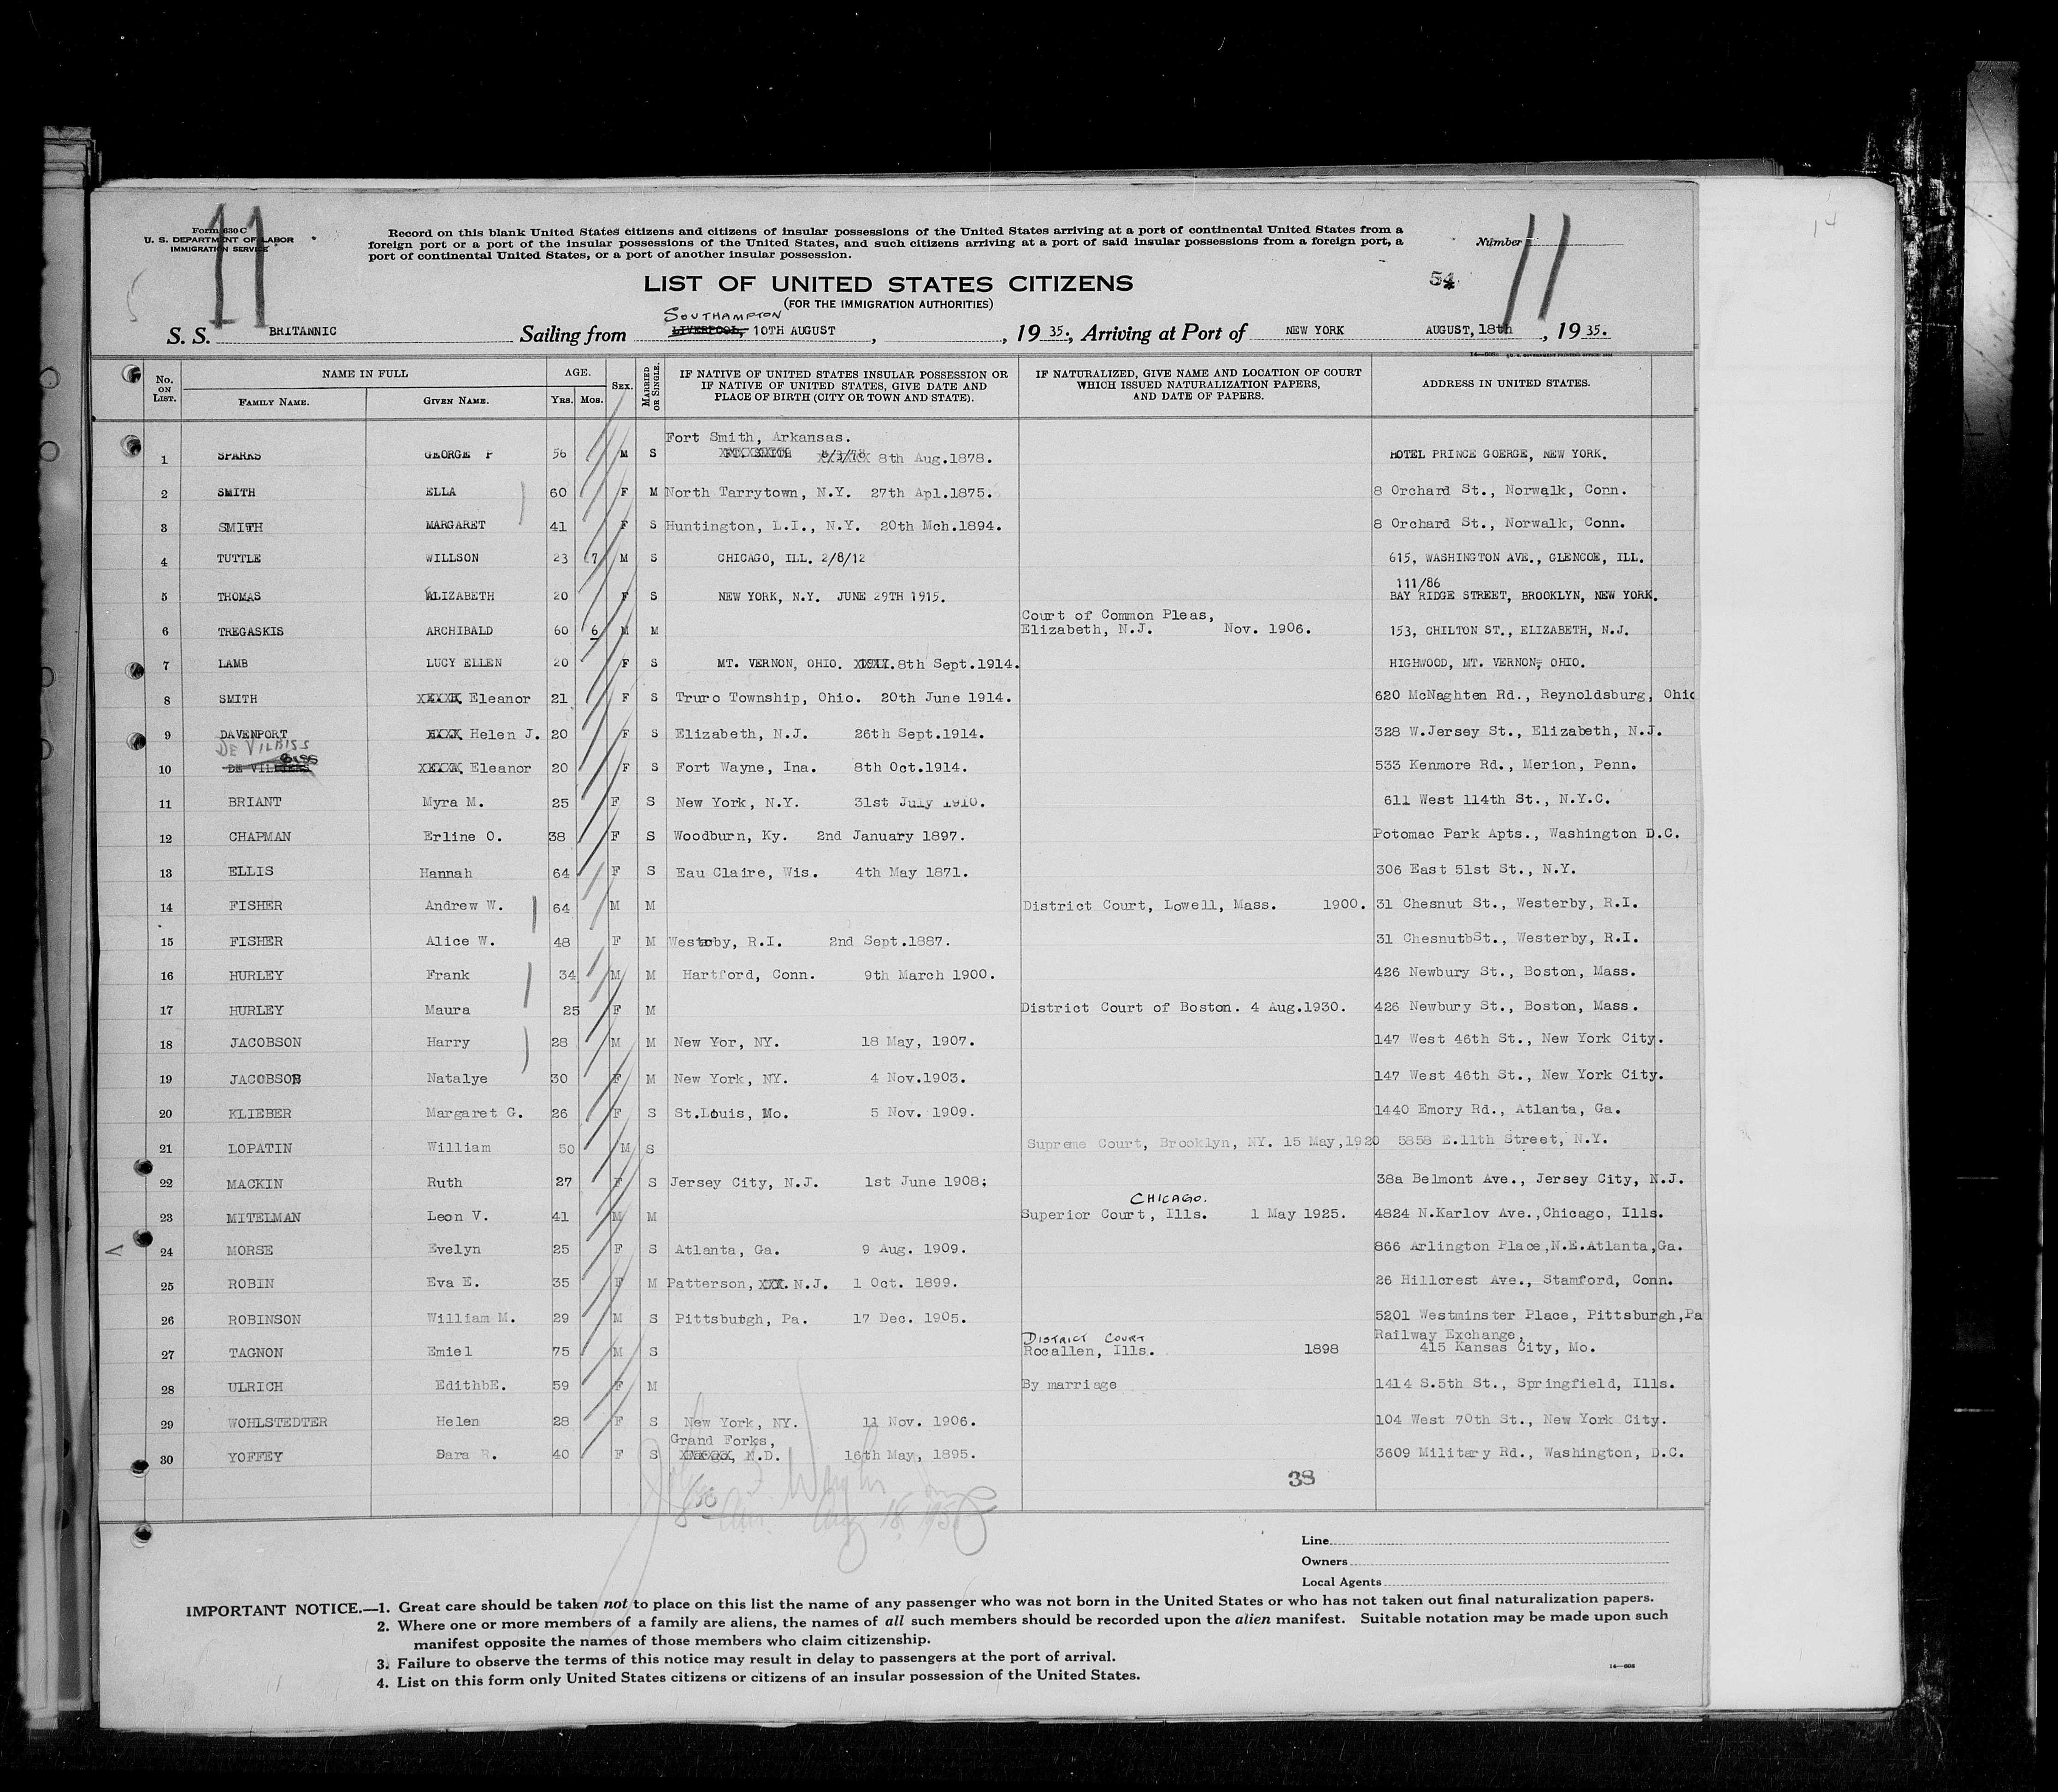 14
11
Form 630 C
U. S. DEPARTMENT OF LABOR
IMMIGRATION SERVICE
Record on this blank United States citizens and citizens of insular possessions of the United States arriving at a port of continental United States from a
foreign port or a port of the insular possessions of the United States, and such citizens arriving at a port of said insular possessions from a foreign port, a
port of continental United States, or a port of another insular possession.
Number 11
54
LIST OF UNITED STATES CITIZENS
(FOR THE IMMIGRATION AUTHORITIES)
SOUTHAMPTON
S. S. BRITANNIC Sailing from LIVERPOOL, 10TH AUGUST, , 19 35., Arriving at Port of NEW YORK AUGUST, 18th, 19 35.
No. ON LIST. NAME IN FULL FAMILY NAME. GIVEN NAME. AGE. YRS. MOS. SEX. MARRIED OR SINGLE. IF NATIVE OF UNITED STATES INSULAR POSSESSION OR IF NATIVE OF UNITED STATES, GIVE DATE AND PLACE OF BIRTH (CITY OR TOWN AND STATE). IF NATURALIZED, GIVE NAME AND LOCATION OF COURT WHICH ISSUED NATURALIZATION PAPERS, AND DATE OF PAPERS. ADDRESS IN UNITED STATES.
Fort Smith, Arkansas.
1 SPARKS GEORGE P 56 M S 8th Aug.1878. HOTEL PRINCE GOERGE, NEW YORK.
2 SMITH ELLA 60 F M North Tarrytown, N.Y. 27th Apl.1875. 8 Orchard St., Norwalk, Conn.
3 SMITH MARGARET 41 F S Huntington, L.I., N.Y. 20th Mch.1894. 8 Orchard St., Norwalk, Conn.
4 TUTTLE WILLSON 23 7 M S CHICAGO, ILL. 2/8/12 615, WASHINGTON AVE., GLENCOE, ILL.
111/86
5 THOMAS ELIZABETH 20 F S NEW YORK, N.Y. JUNE 29TH 1915. BAY RIDGE STREET, BROOKLYN, NEW YORK.
Court of Common Pleas,
6 TREGASKIS ARCHIBALD 60 6 M M Elizabeth, N.J. Nov. 1906. 153, CHILTON ST., ELIZABETH, N.J.
7 LAMB LUCY ELLEN 20 F S MT. VERNON, OHIO. 8th Sept.1914. HIGHWOOD, MT. VERNON, OHIO.
8 SMITH Eleanor 21 F S Truro Township, Ohio. 20th June 1914. 620 McNaghten Rd., Reynoldsburg, Ohio
9 DAVENPORT Helen J. 20 F S Elizabeth, N.J. 26th Sept.1914. 328 W.Jersey St., Elizabeth, N.J.
DE VILBISS
10 DE VILBISS Eleanor 20 F S Fort Wayne, Ina. 8th Oct.1914. 533 Kenmore Rd., Merion, Penn.
11 BRIANT Myra M. 25 F S New York, N.Y. 31st July 1910. 611 West 114th St., N.Y.C.
12 CHAPMAN Erline O. 38 F S Woodburn, Ky. 2nd January 1897. Potomac Park Apts., Washington D.C.
13 ELLIS Hannah 64 F S Eau Claire, Wis. 4th May 1871. 306 East 51st St., N.Y.
14 FISHER Andrew W. 64 M M District Court, Lowell, Mass. 1900. 31 Chesnut St., Westerby, R.I.
15 FISHER Alice W. 48 F M Westerby, R.I. 2nd Sept.1887. 31 ChesnutbSt., Westerby, R.I.
16 HURLEY Frank 34 M M Hartford, Conn. 9th March 1900. 426 Newbury St., Boston, Mass.
17 HURLEY Maura 25 F M District Court of Boston. 4 Aug.1930. 426 Newbury St., Boston, Mass.
18 JACOBSON Harry 28 M M New Yor, NY. 18 May, 1907. 147 West 46th St., New York City.
19 JACOBSON Natalye 30 F M New York, NY. 4 Nov.1903. 147 West 46th St., New York City.
20 KLIEBER Margaret G. 26 F S St.Louis, Mo. 5 Nov. 1909. 1440 Emory Rd., Atlanta, Ga.
21 LOPATIN William 50 M S Supreme Court, Brooklyn, NY. 15 May,1920 5858 E.11th Street, N.Y.
22 MACKIN Ruth 27 F S Jersey City, N.J. 1st June 1908; 38a Belmont Ave., Jersey City, N.J.
CHICAGO.
23 MITELMAN Leon V. 41 M M Superior Court, Ills. 1 May 1925. 4824 N.Karlov Ave.,Chicago, Ills.
24 MORSE Evelyn 25 F S Atlanta, Ga. 9 Aug. 1909. 866 Arlington Place,N.E.Atlanta,Ga.
25 ROBIN Eva E. 35 F M Patterson, N.J. 1 Oct. 1899. 26 Hillcrest Ave., Stamford, Conn.
26 ROBINSON William M. 29 M S Pittsbutgh, Pa. 17 Dec. 1905. 5201 Westminster Place, Pittsburgh,Pa
DISTRICT COURT Railway Exchange,
27 TAGNON Emiel 75 M S Rocallen, Ills. 1898 415 Kansas City, Mo.
28 ULRICH EdithbE. 59 F M By marriage 1414 S.5th St., Springfield, Ills.
29 WOHLSTEDTER Helen 28 F S New York, NY. 11 Nov. 1906. 104 West 70th St., New York City.
Grand Forks,
30 YOFFEY Sara R. 40 F S N.D. 16th May, 1895. 3609 Military Rd., Washington, D.C.
38
Line
Owners
Local Agents
IMPORTANT NOTICE.—1. Great care should be taken not to place on this list the name of any passenger who was not born in the United States or who has not taken out final naturalization papers.
2. Where one or more members of a family are aliens, the names of all such members should be recorded upon the alien manifest. Suitable notation may be made upon such
manifest opposite the names of those members who claim citizenship.
3. Failure to observe the terms of this notice may result in delay to passengers at the port of arrival.
4. List on this form only United States citizens or citizens of an insular possession of the United States.